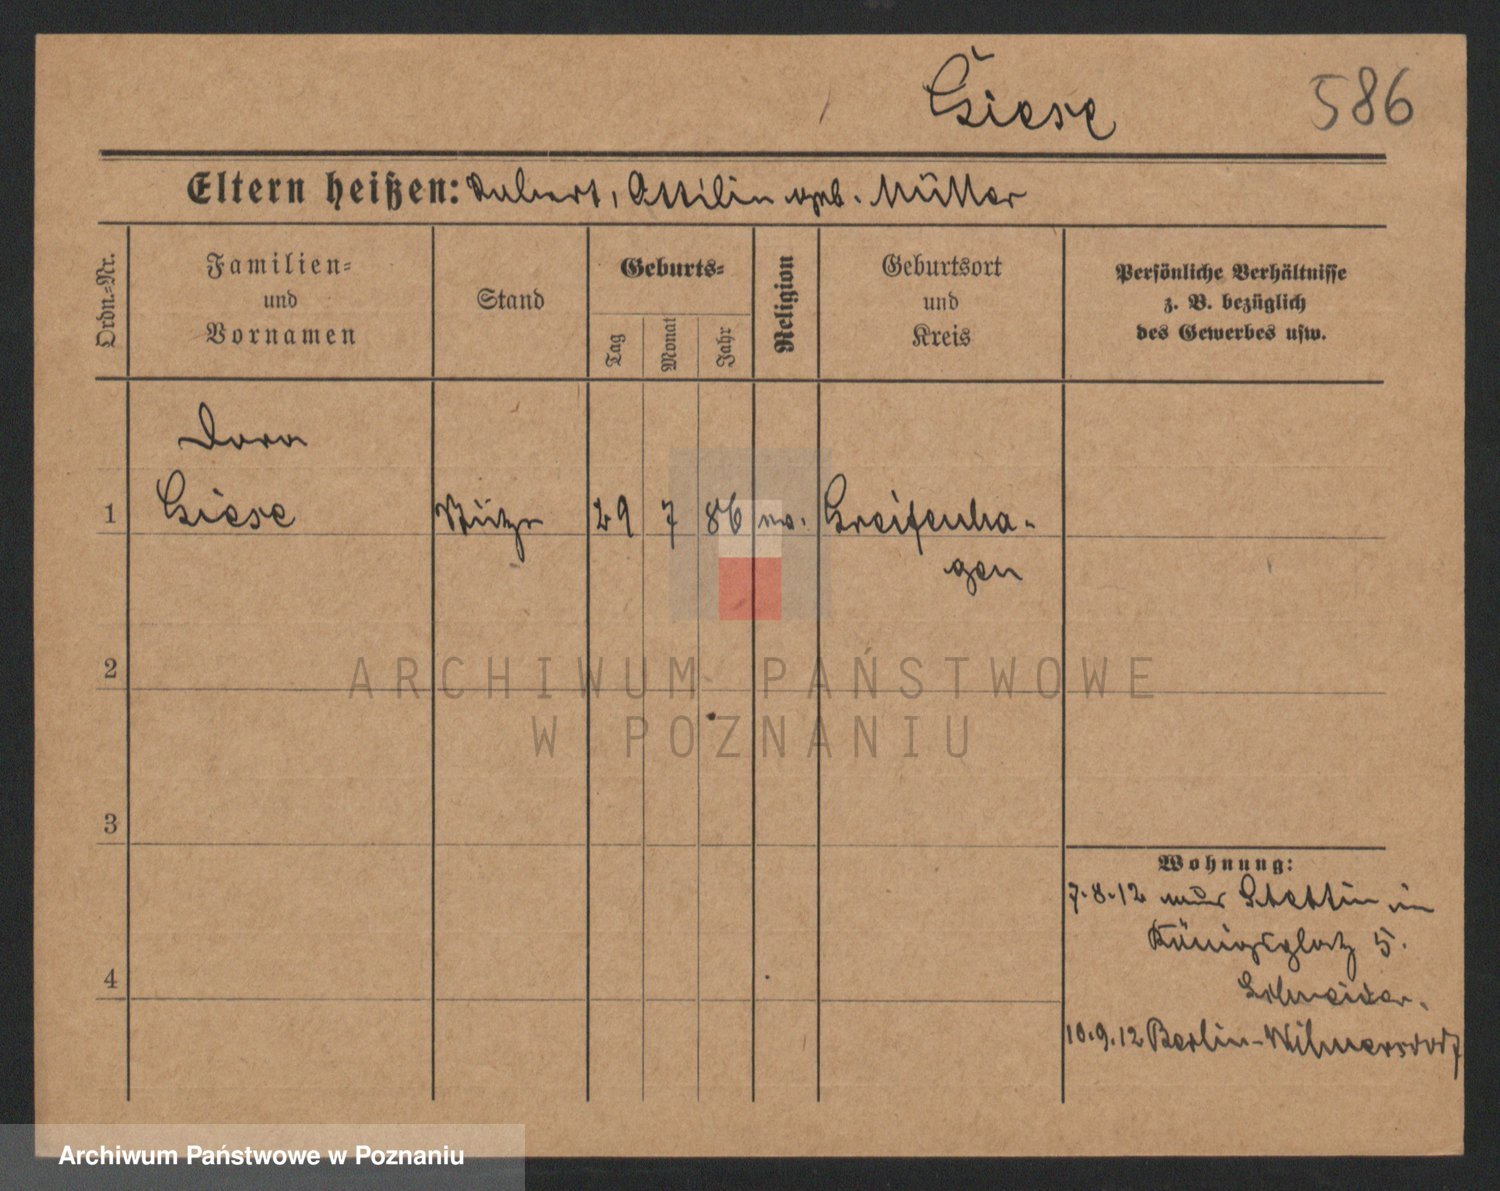 Giese 586
Eltern heißen: Robert, Ottilie geb. Müller
Ordn.-Nr.
Familien-
und
Vornamen
Stand
Geburts-
Tag
Monat
Jahr
Religion
Geburtsort
und
Kreis
Persönliche Verhältnisse
z. B. bezüglich
des Gewerbes usw.
Dora
1 Giese Stütze 29 7 86 ev. Greifenha-
gen
2
ARCHIWUM PAŃSTWOWE
W POZNANIU
3
Wohnung:
7.8.12 Stettin
Königsplatz 5.
4
Schneider.
10.9.12 Berlin-Wilmersdorf
Archiwum Państwowe w Poznaniu